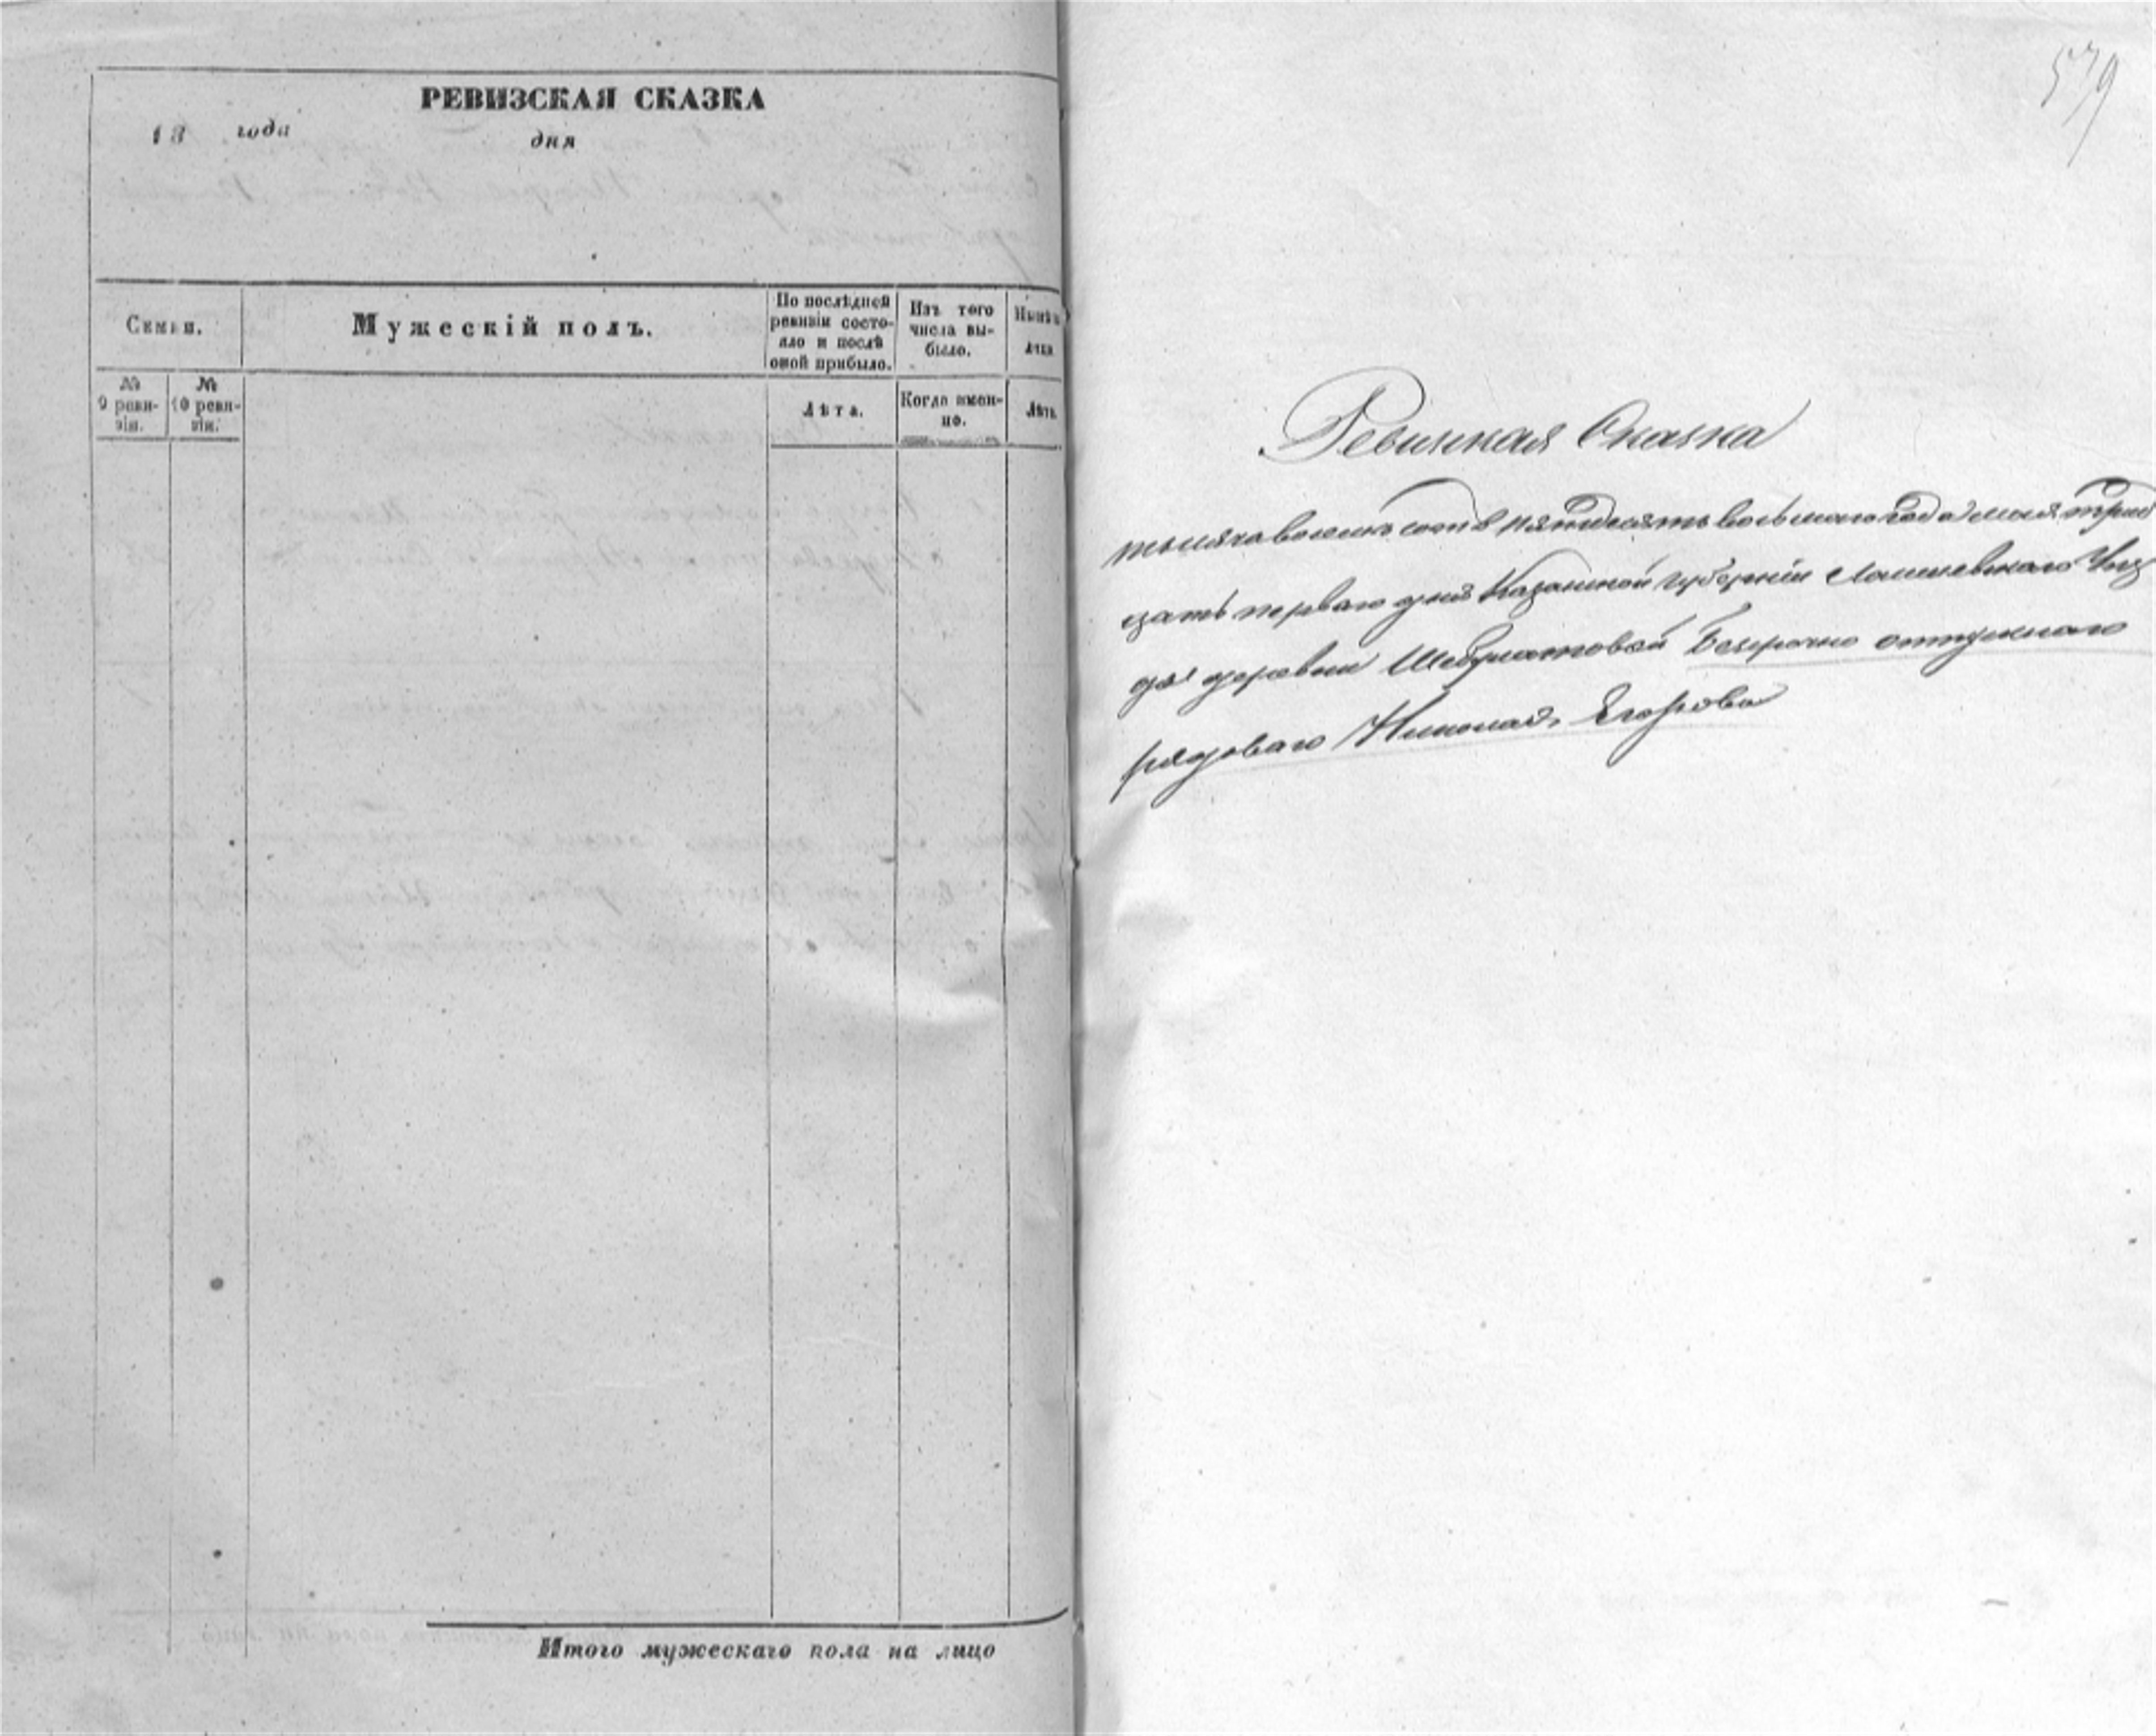 РЕВИЗСКАЯ СКАЗКА
18 года
дня
Семьи.
Мужескій полъ.
По послѣдней
ревизіи состо-
яло и послѣ
оной прибыло.
Изъ того
числа вы-
было.
№
9 реви-
зіи.
№
10 реви-
зіи.
Лѣта.
Когда имен-
но.
Лѣта.
Итого мужескаго пола на лицо
579
Ревизская Сказка
тысяча восемь сотъ пятидесять восьмаго года мая трид
цать перваго дня Казанской губерніи Лаишевскаго Уез
да деревни Безсрочно отпускнаго
рядоваго Николая Егорова